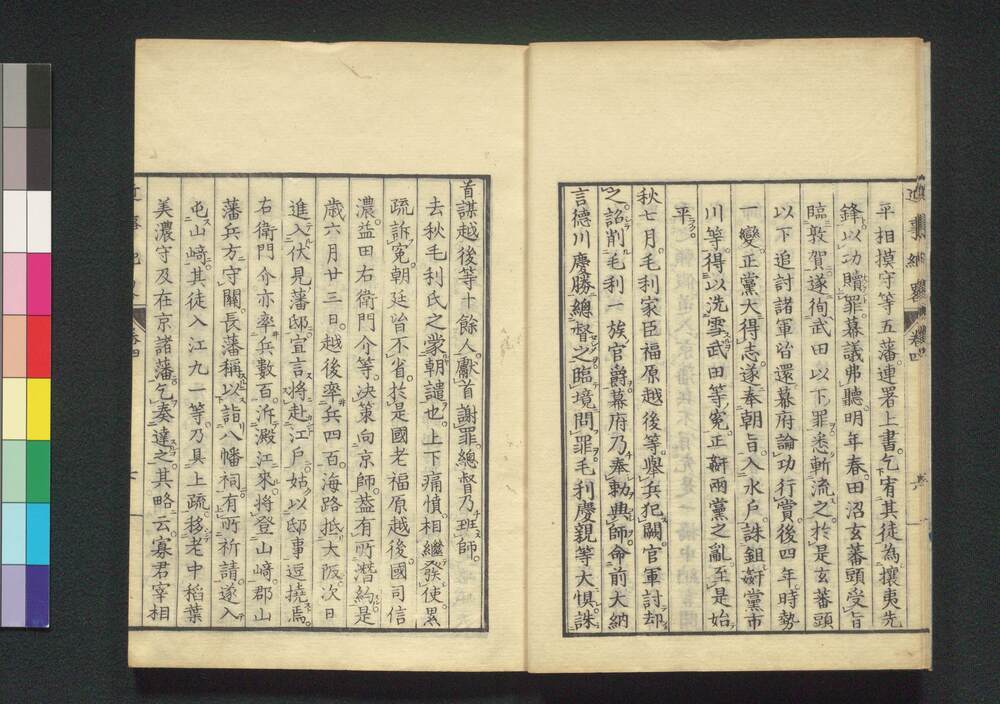 平相摸守等五藩連署上書乞宥其徒為攘夷先
鋒以功贖罪幕議弗聽明年春田沼玄蕃頭受旨
臨敦賀遂徇武田以下罪悉斬流之於是玄蕃頭
以下追討諸軍皆還幕府論功行賞後四年時勢
一變正黨大得志遂奉朝旨入水戶誅鉏姧黨市
川等得以洗雪武田等寃正姧兩黨之亂至是始
平
秋七月毛利家臣福原越後等舉兵犯闕官軍討却
之詔削毛利一族官爵幕府乃奉勅典師命前大納
言德川慶勝總督之臨境問罪毛利慶親等大惧誅
首謀越後等十餘人獻首謝罪總督乃班師
去秋毛利氏之蒙朝譴也上下痛憤相繼發使累
疏訴寃朝廷皆不省於是國老福原越後國司信
濃益田右衛門介等決策向京師蓋有所潛約是
歲六月廿三日越後率兵四百海路抵大阪次日
進入伏見藩邸宣言將赴江戶姑以邸事逗撓焉
右衛門介亦率兵數百泝澱江來將登山﨑郡山
藩兵方守關長藩稱以詣八幡祠有所祈請遂入
屯山﨑其徒入江九一等乃具上疏移老中稻葉
美濃守及在京諸藩乞奏達之其略云寡君宰相